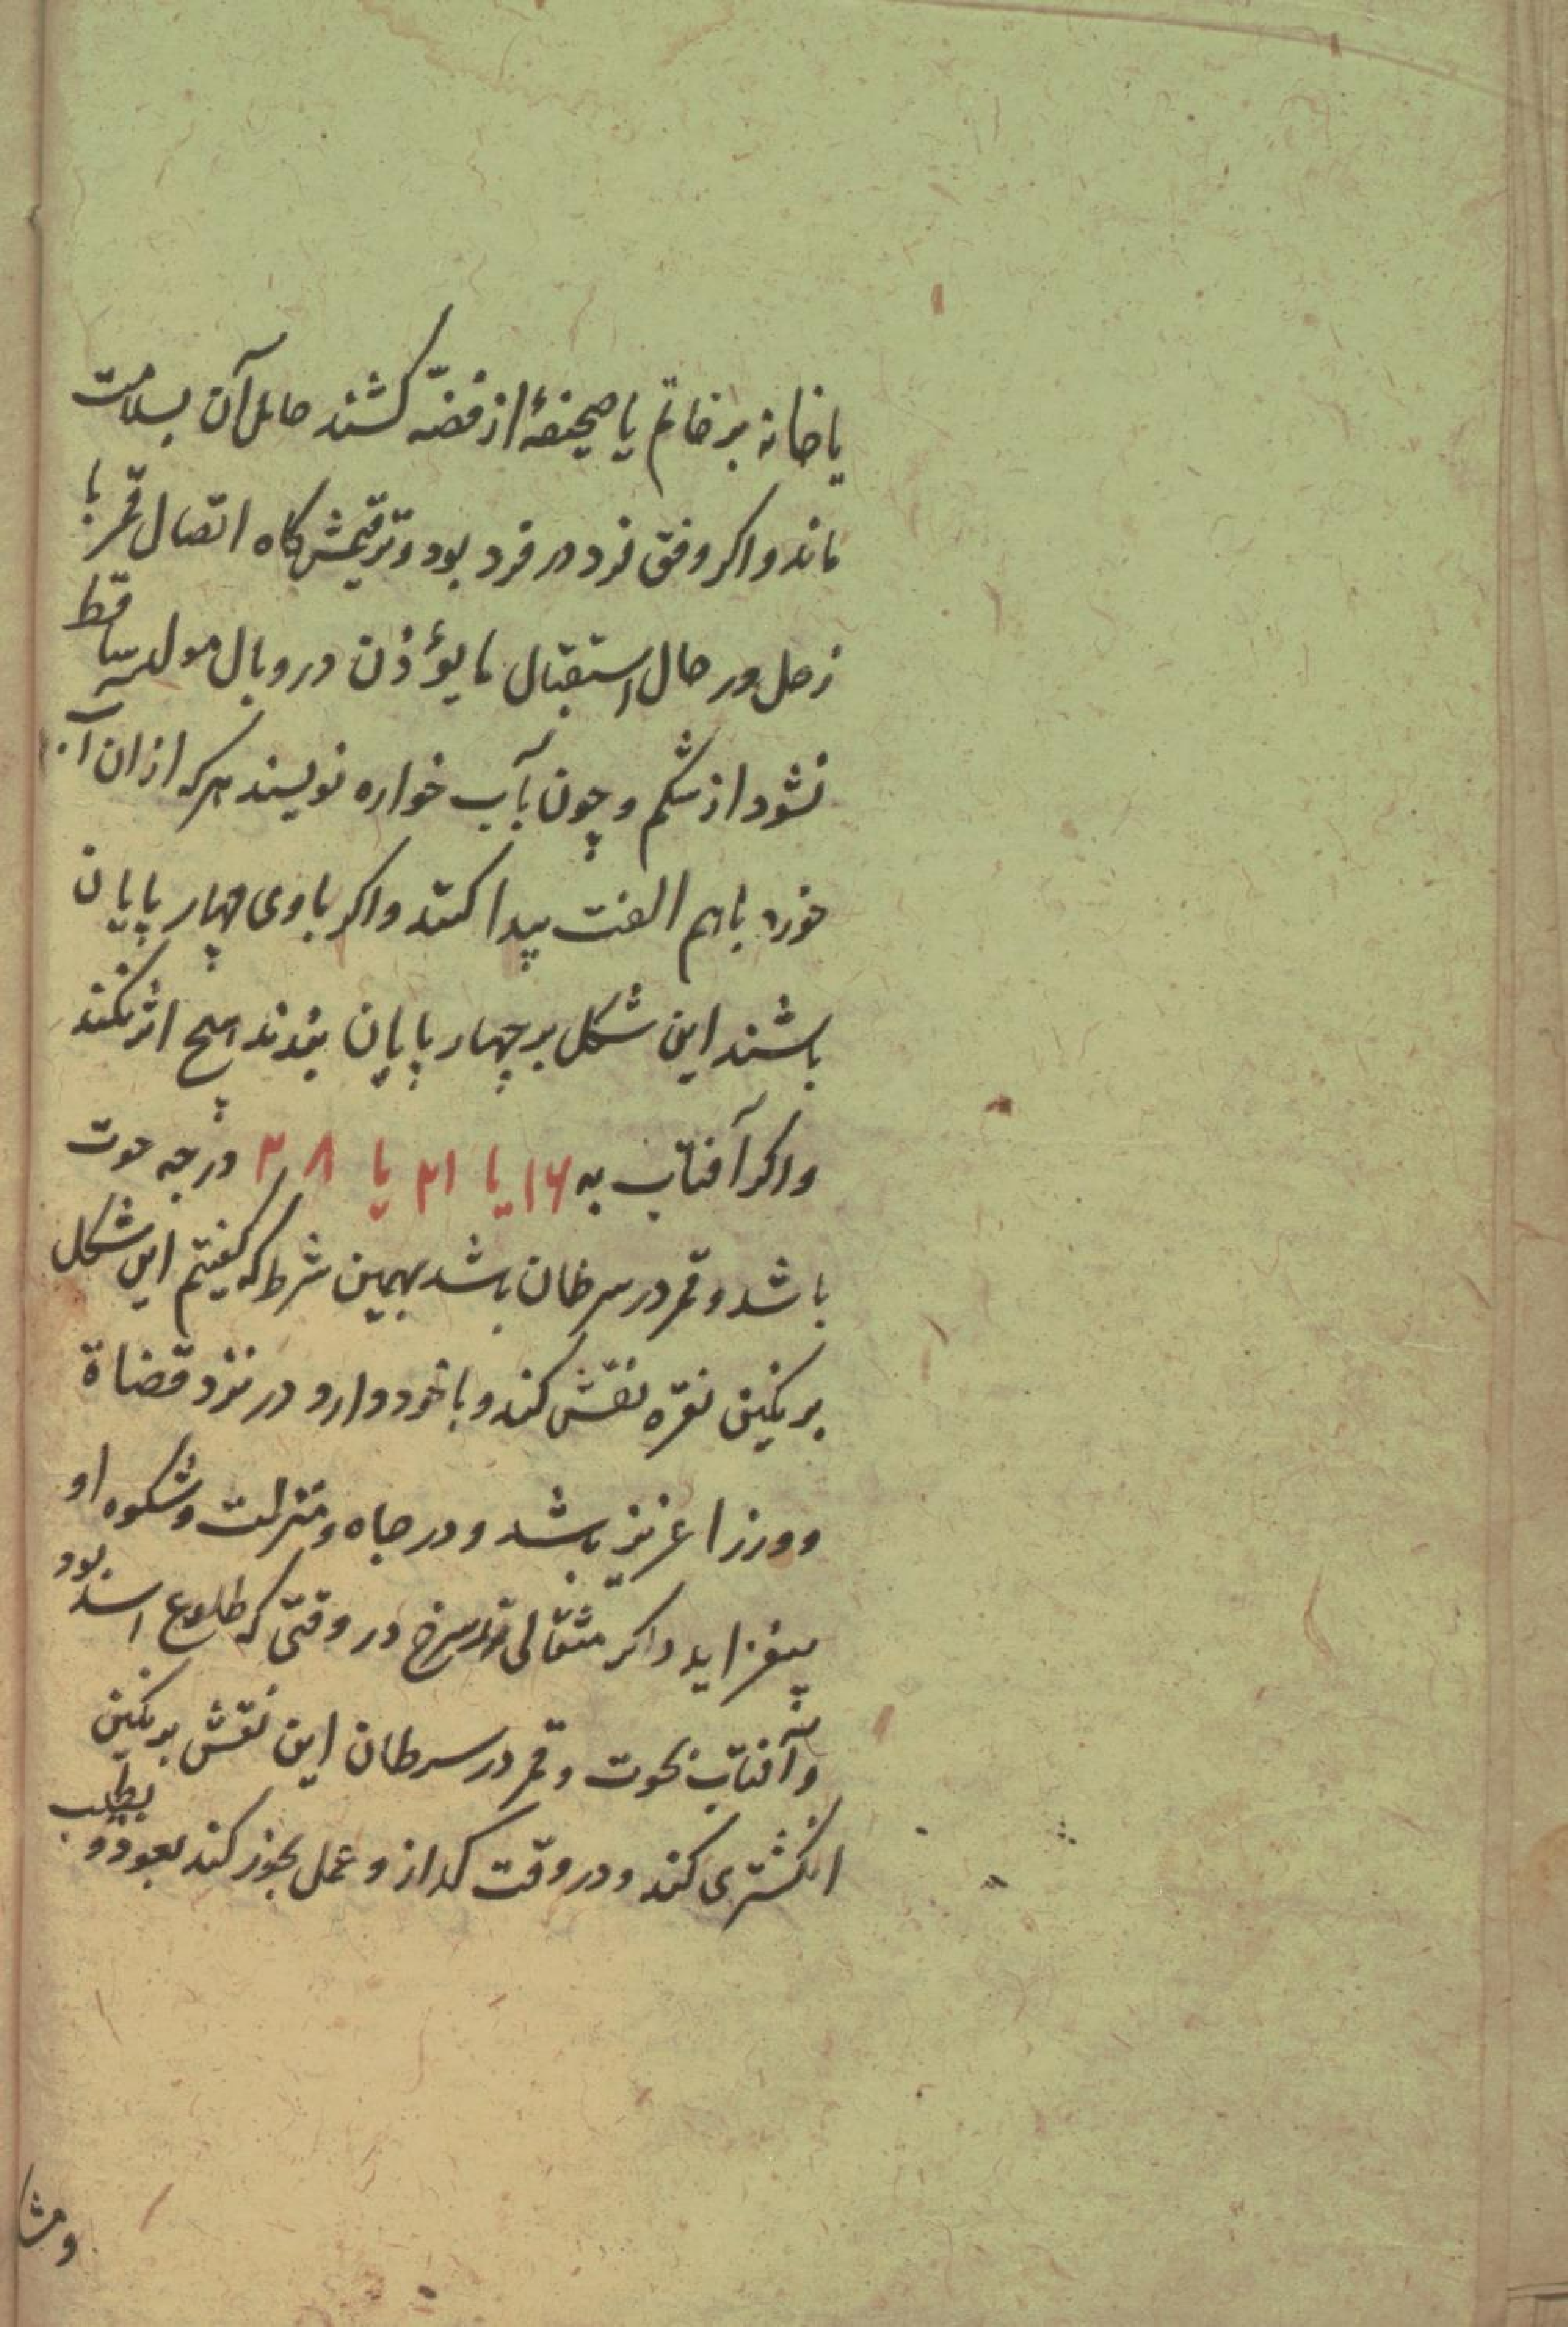 یا خانه بر خاتم یا صحیفهٔ از فضّه کشند حامل آن بسلامت
ماند و اکر وفق فرد در فرد بود و ترقیمش کاه اتصال قمر با
زحل در حال استقبال ما یؤذن در وبال مولد ساقط
نشود از شکم و چون بآب خواره نویسند هرکه ازان آب
خورد باهم الفت پیدا کنند و اکر باوی چهار پایان
باشند این شکل بر چهار پایان بندند هیچ اثر نکند
و اکر آفتاب به ۱۶ یا ۲۱ یا ۲۸ درجه حوت
باشد و قمر در سرطان باشد بهمین شرط که کفیتم این شکل
بر نکین نقره نقش کند و با خود دارد در نزد قضاة
و وزرا عزیز باشد و در جاه و منزلت و شکوه او
بیفزاید و اکر مثقالی زر سرخ در وقتی که طلوع اسد بود
و آفتاب بحوت و قمر در سرطان این نقش بر نکین
انکشتری کند و در وقت کداز و عمل بخور کند بعود و بطیب
ومشا